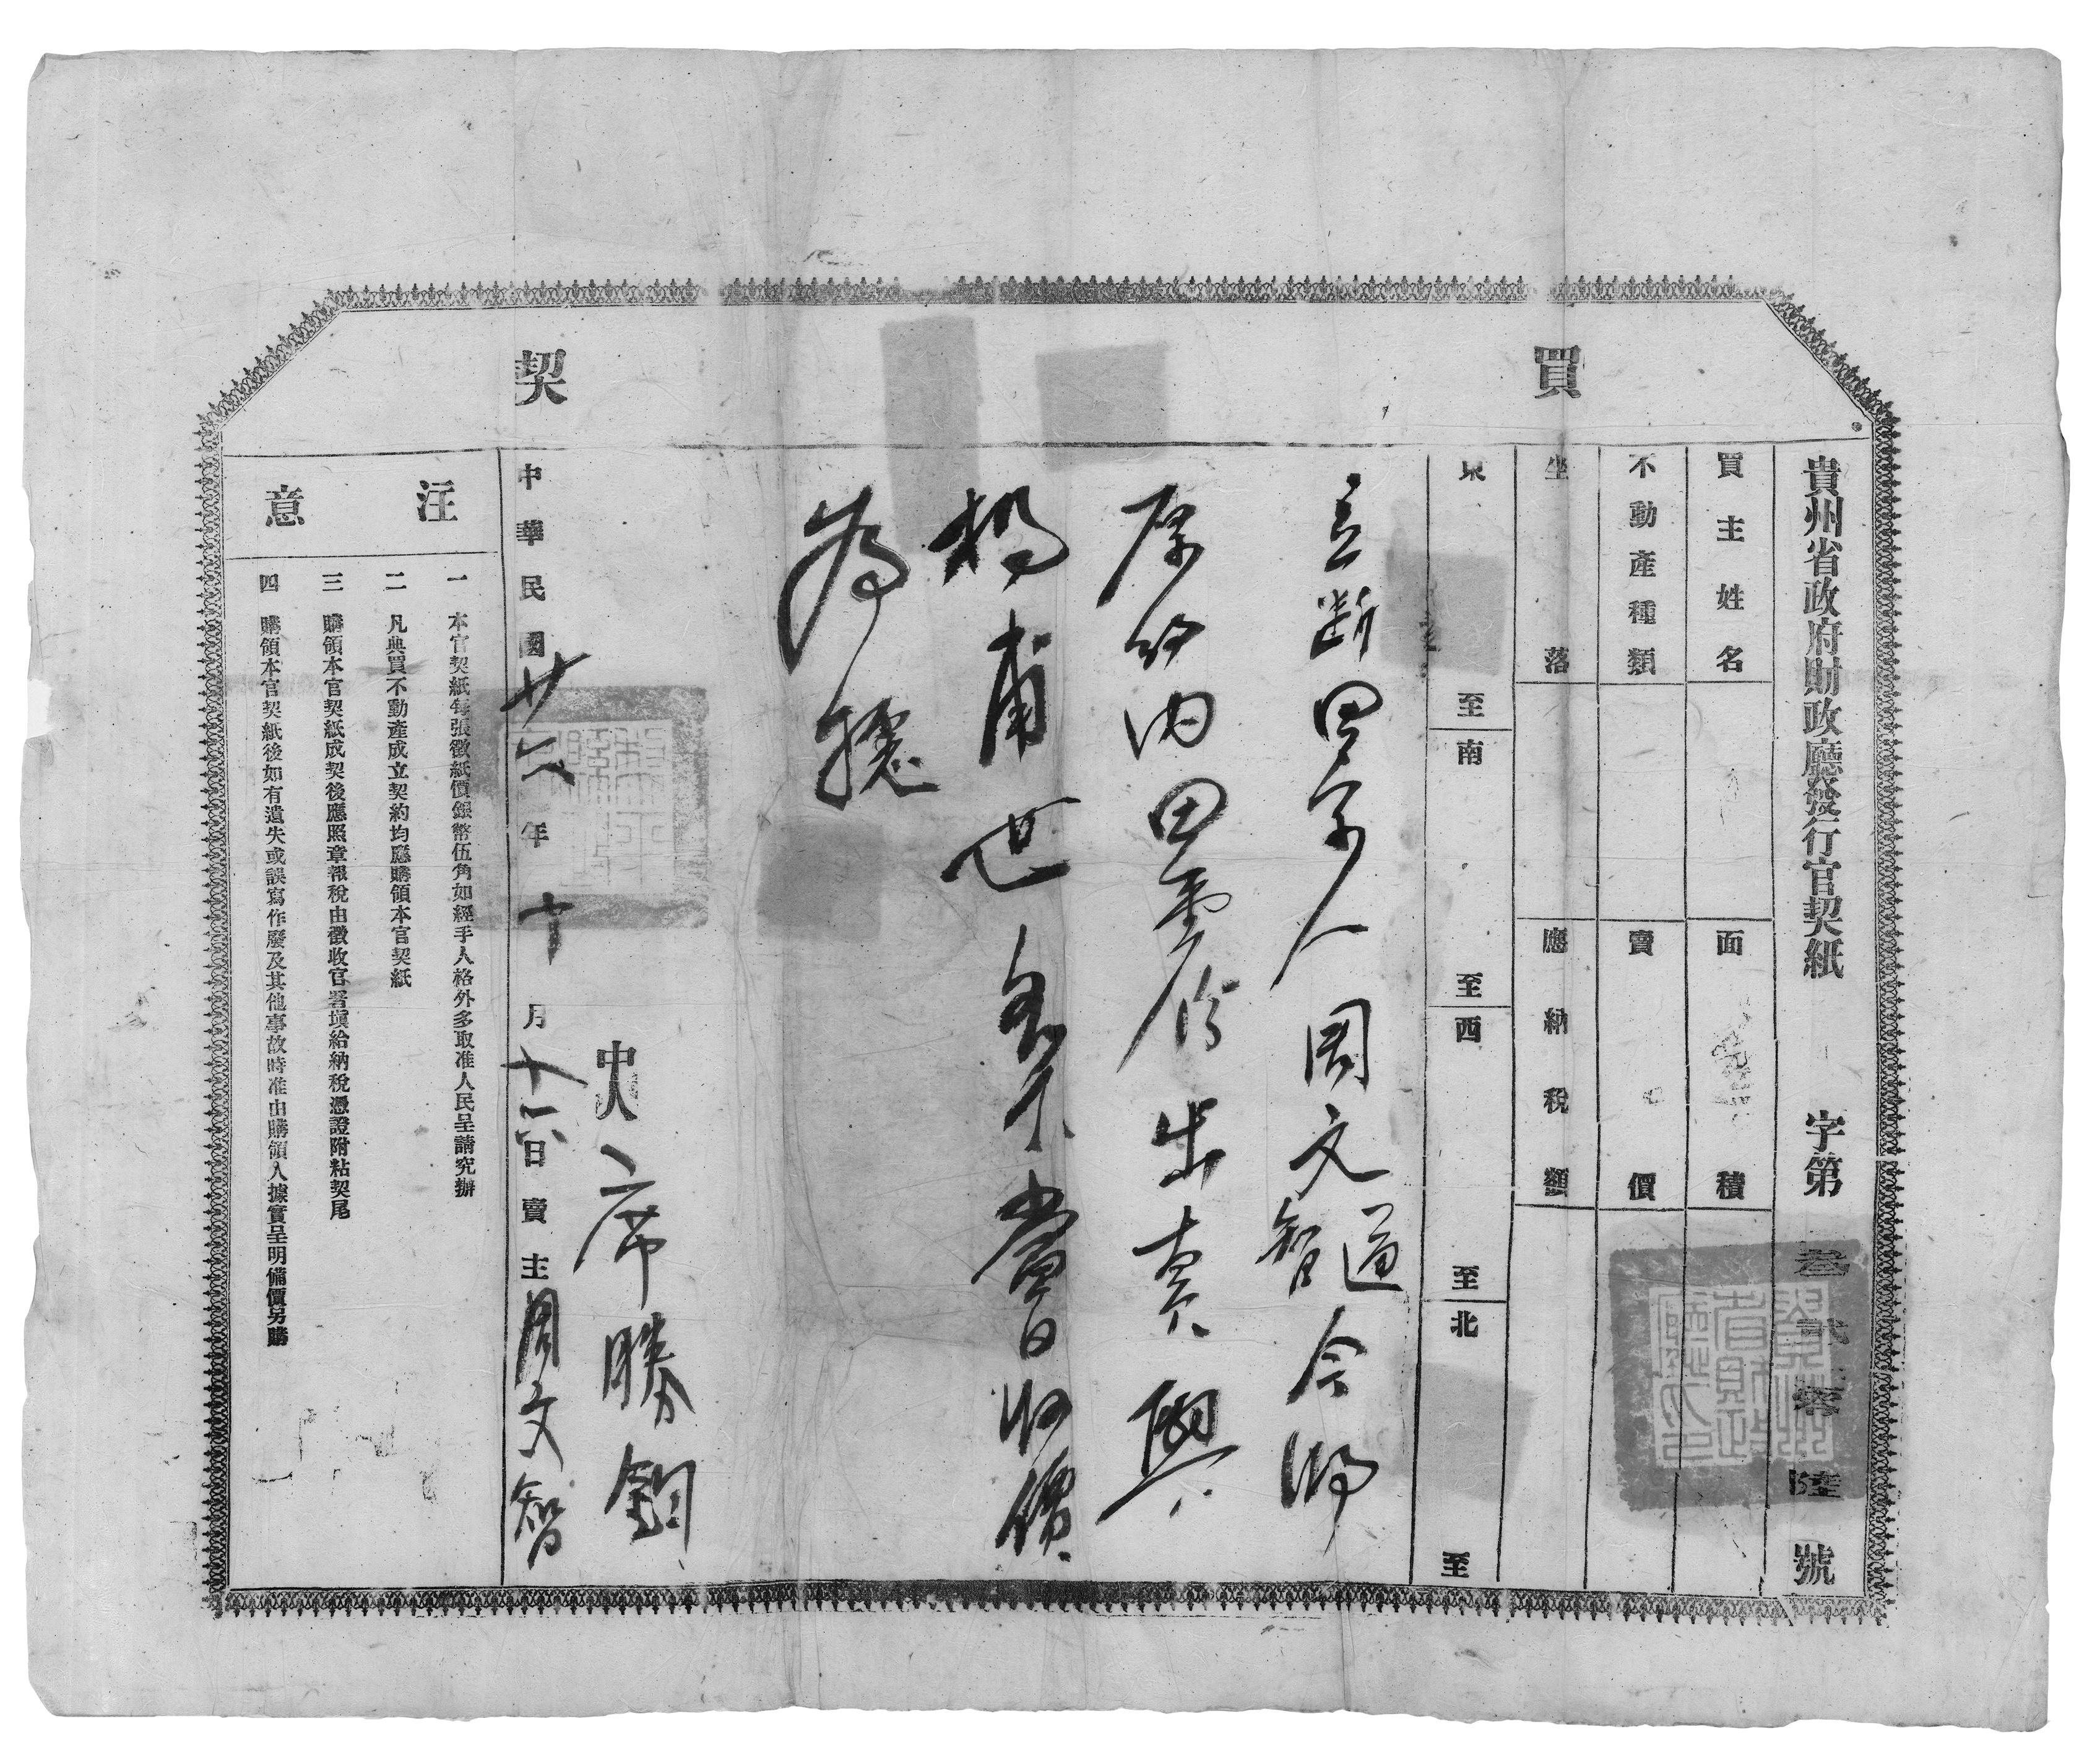 買契
貴州省政府財政廳發行官契紙　字第叁貳零陸號
買主姓名　面積
不動產種類　賣價
坐落　應納稅額
東至　南至　西至　北至
立斷田字人周文道智今將
原約內田壹份出賣與
楊甫世名下當日收價
為據
中人席勝鈞
中華民國廿六年十月十六日賣主周文智
注意
一　本官契紙每張徵紙價銀幣伍角如經手人格外多取准人民呈請究辦
二　凡典買不動產成立契約均應購領本官契紙
三　購領本官契紙成契後應照章報稅由徵收官署填給納稅憑證附粘契尾
四　購領本官契紙後如有遺失或誤寫作廢及其他事故時准由購領人據實呈明備價另購